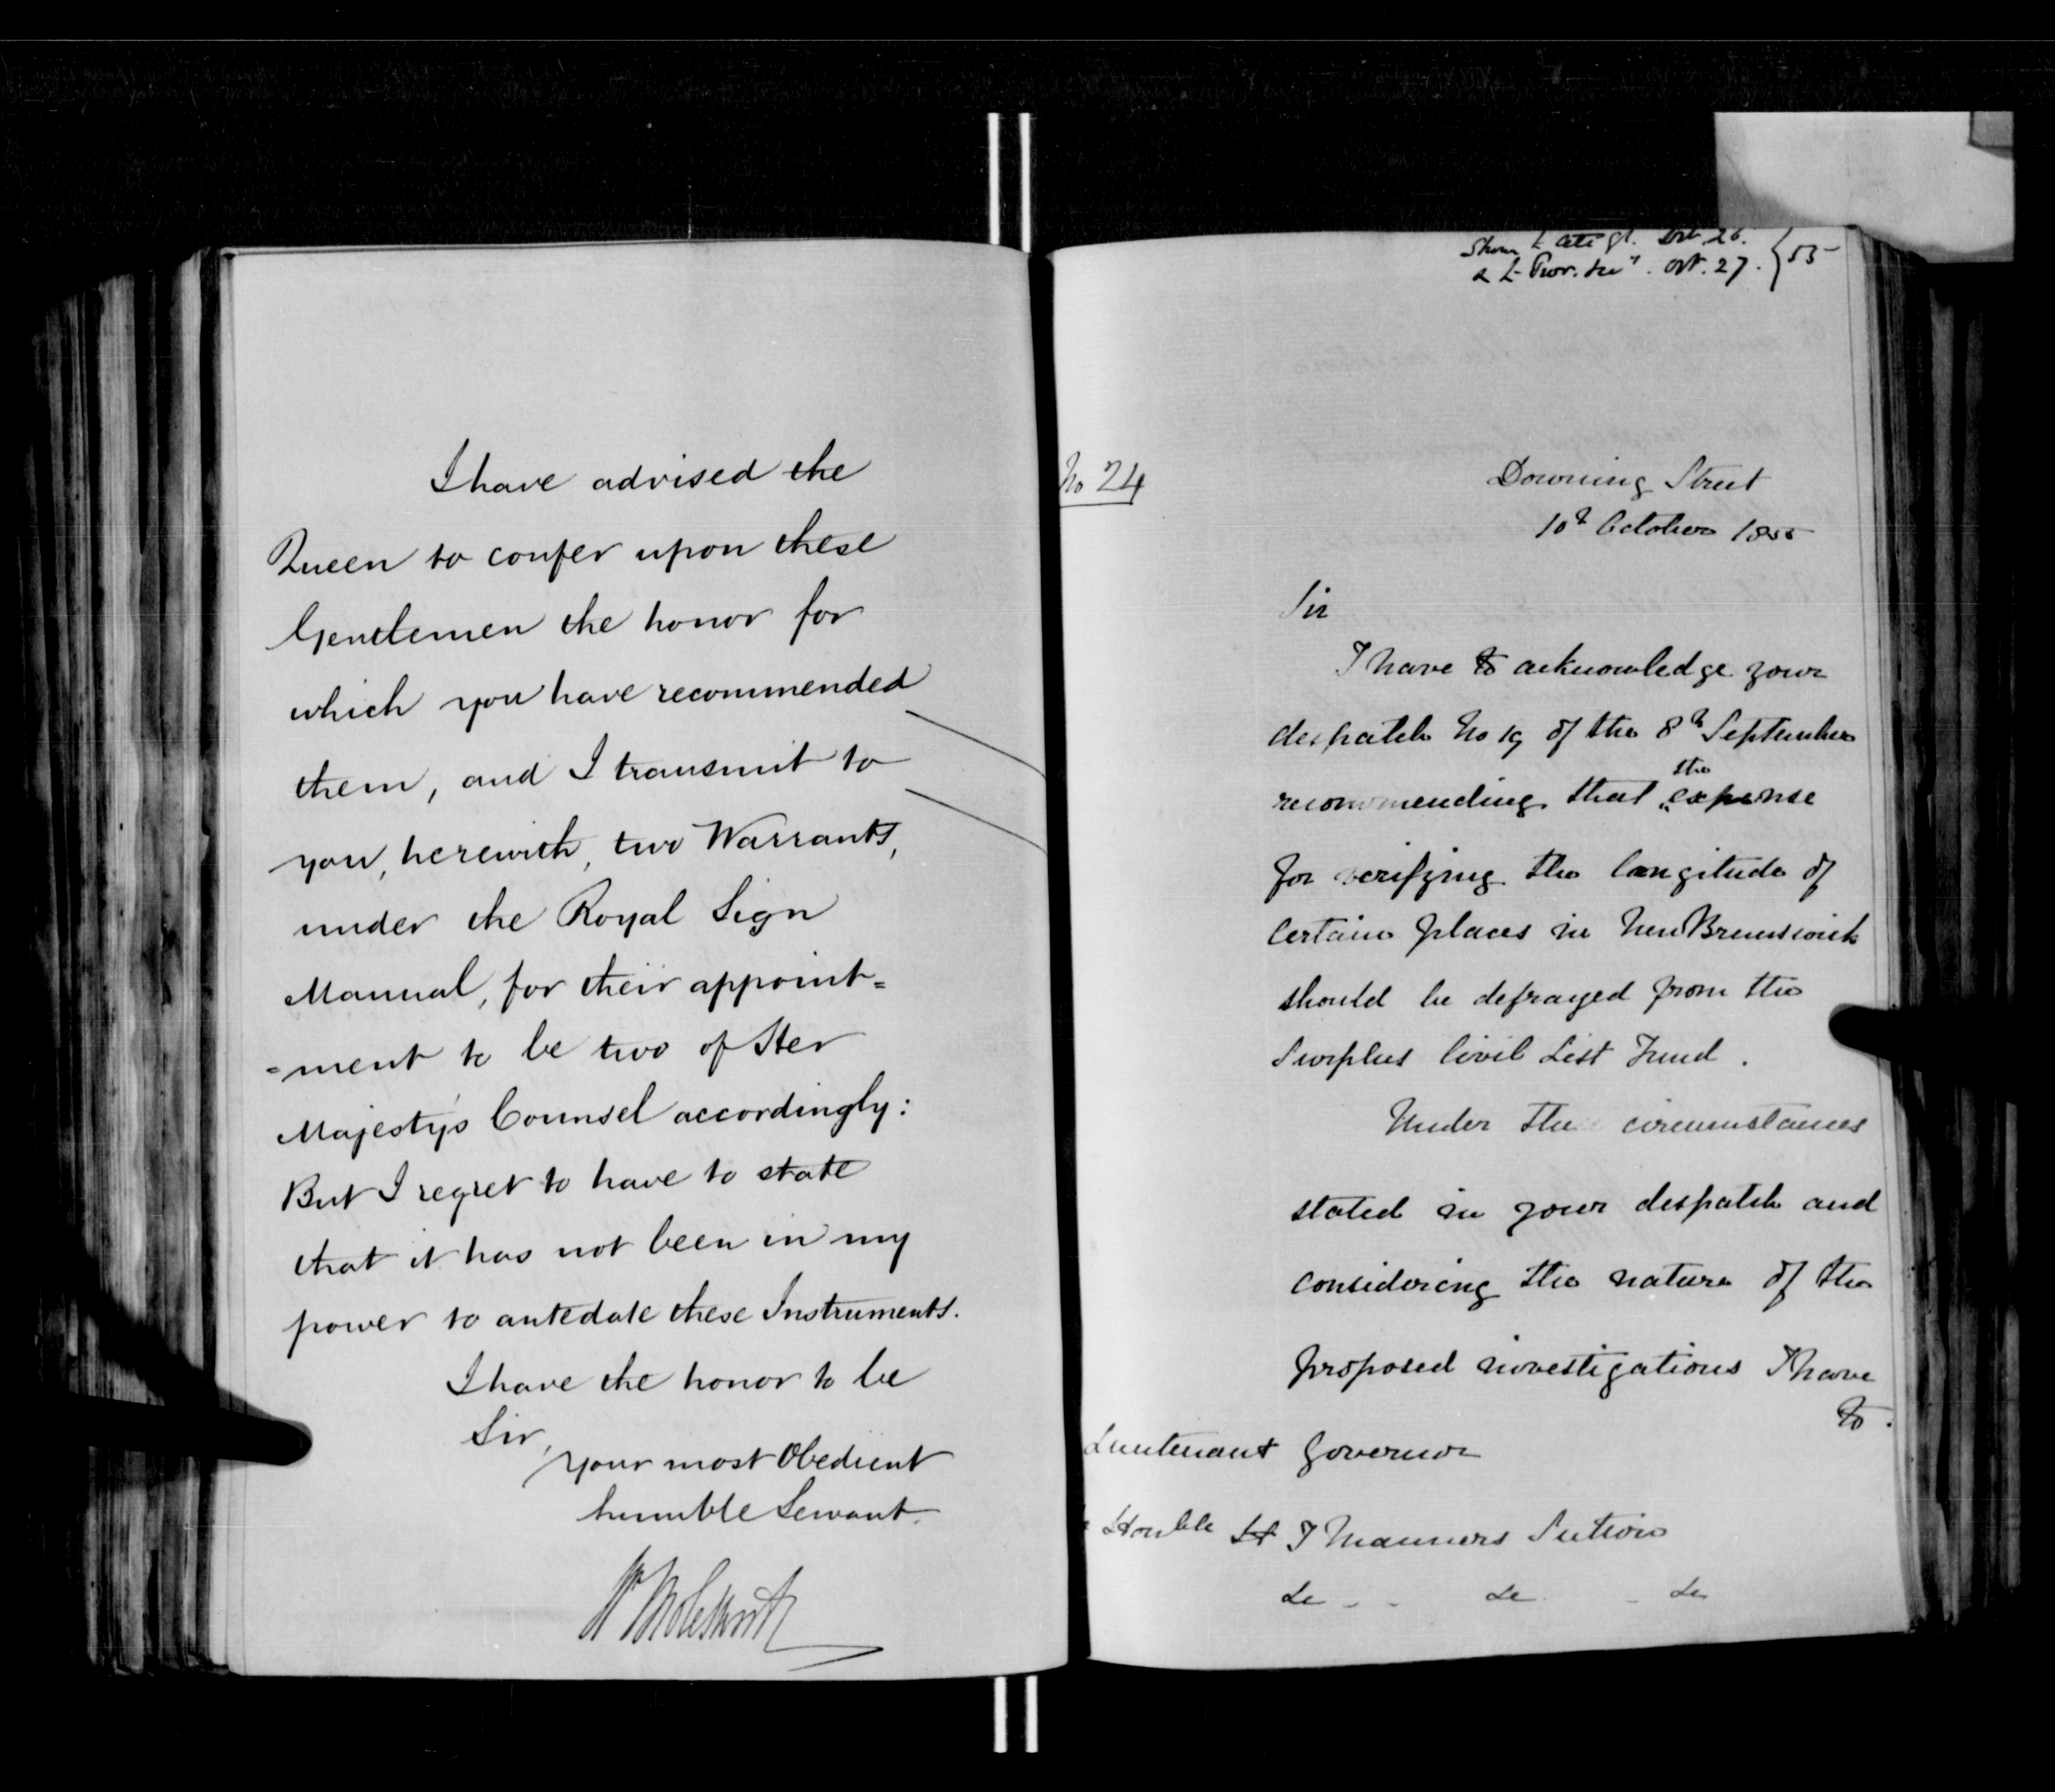 I have advised the
Queen to confer upon these
Gentlemen the honor for
which you have recommended
them, and I transmit to
you, herewith, two Warrants,
under the Royal Sign
Manual, for their appoint=
=ment to be two of Her
Majesty's Counsel accordingly:
But I regret to have to state
that it has not been in my
power to antedate these Instruments.
I have the honor to be
Sir,
Your most Obedient
humble Servant.
W Molesworth
Oct. 26.
& Prov. Secy. Oct. 27. } 55
No 24
Downing Street
10th October 1855
Sir
I have to acknowledge your
despatch No 19 of the 8th September
the
recommending that expense
for verifying the longitude of
certain places in New Brunswick
should be defrayed from the
Surplus Civil List Fund.
Under the circumstances
stated in your despatch and
considering the nature of the
proposed investigations I have
to.
Lieutenant Governor
Honble H T Manners Sutton
&c &c &c